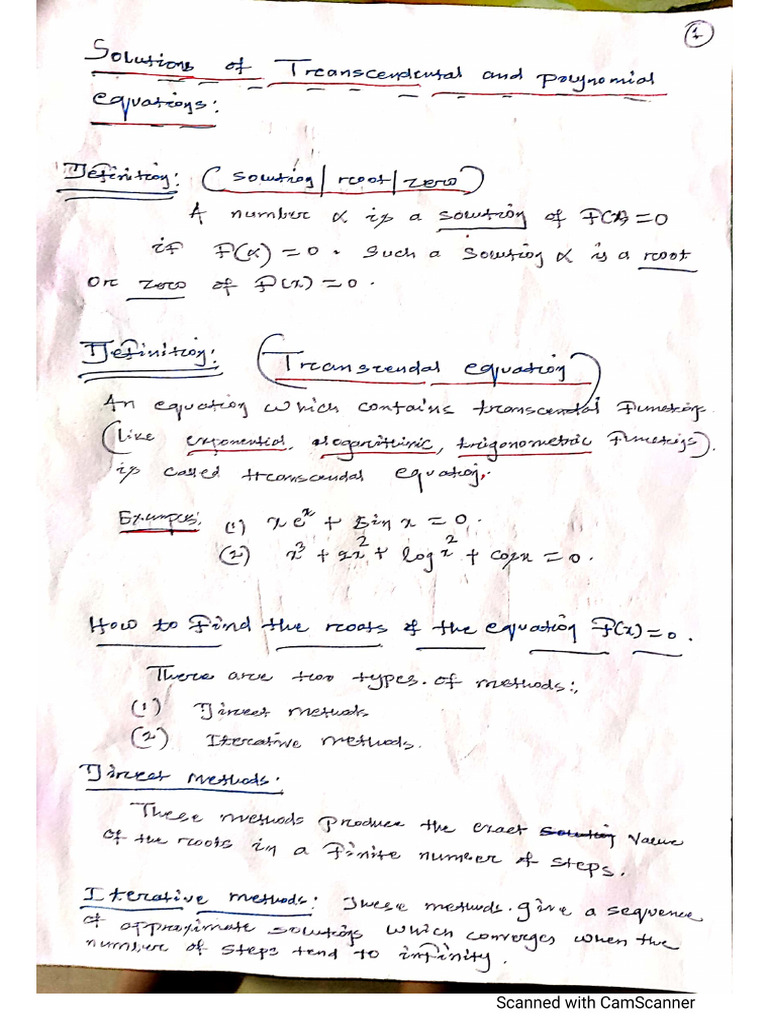 1
Solutions of Transcendental and polynomial
equations:
Definition: (solution/root/zero)
A number α is a solution of f(x)=0
if f(α)=0. Such a solution α is a root
or zero of f(x)=0.
Definition: (Transcendal equation)
An equation which contains transcendal function
(like exponential, logarithmic, trigonometric functions)
is called transcendal equation.
Examples: (1) x e^x + sin x = 0.
(2) x^3 + 2x^2 + log x^2 + cos x = 0.
How to find the roots of the equation f(x)=0.
There are two types of methods:
(1) Direct methods
(2) Iterative methods.
Direct methods.
These methods produce the exact solution value
of the roots in a finite number of steps.
Iterative methods: These methods give a sequence
of approximate solutions which converges when the
number of steps tend to infinity.
Scanned with CamScanner